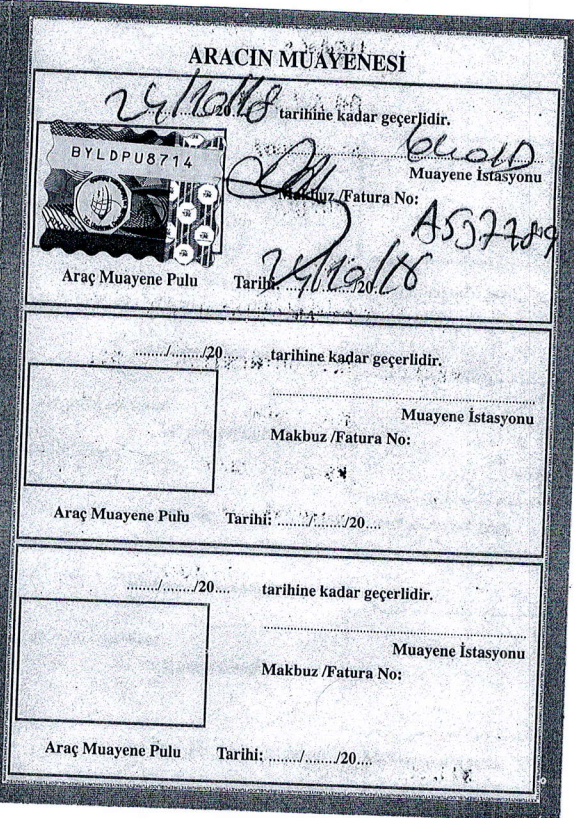 ARACIN MUAYENESİ
24/10/18 tarihine kadar geçerlidir.
BYLDPU8714
Muayene İstasyonu
Makbuz /Fatura No:
A597789
Araç Muayene Pulu Tarihi: 24/10/18
......../......../20.... tarihine kadar geçerlidir.
Muayene İstasyonu
Makbuz /Fatura No:
Araç Muayene Pulu Tarihi: ......../......../20....
......../......../20.... tarihine kadar geçerlidir.
Muayene İstasyonu
Makbuz /Fatura No:
Araç Muayene Pulu Tarihi: ......../......../20....